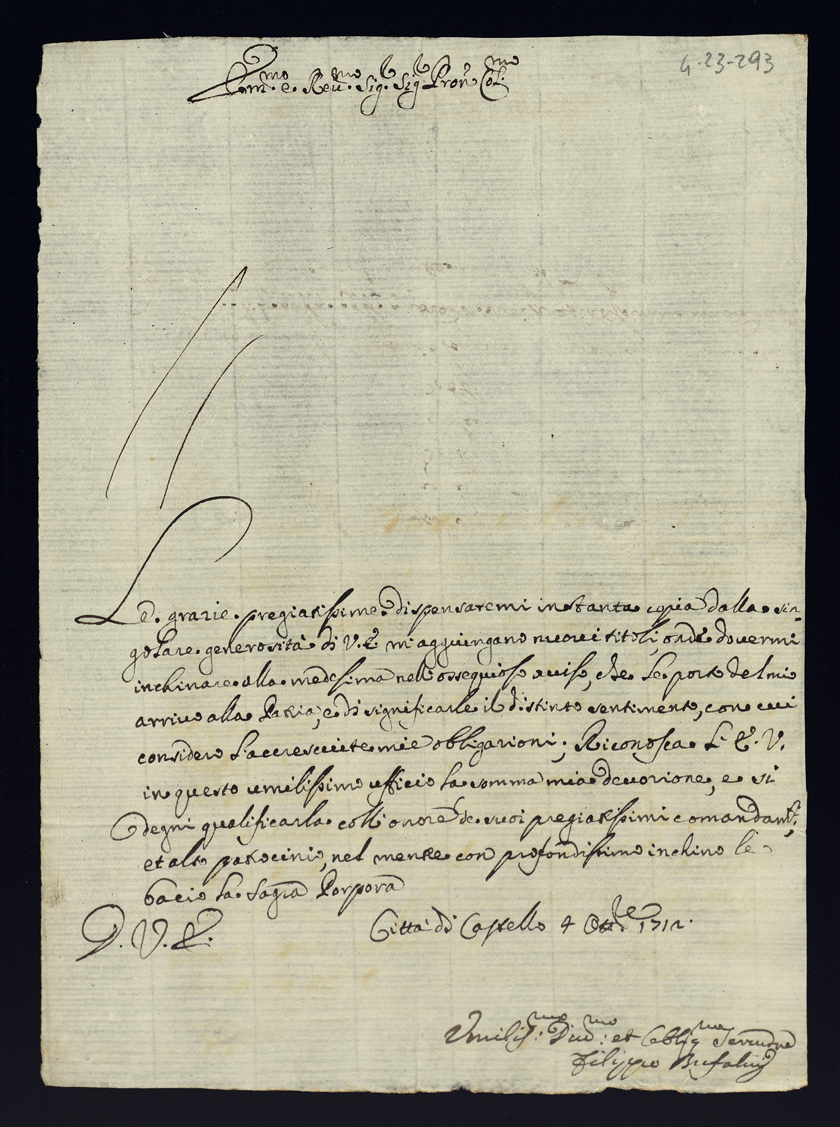 Em.mo e Rev.mo Sig.r Sig.r Pron Col.mo
4-23-293
Le grazie pregiatissime dispensatemi in tanta copia dalla sin-
golare generosità di V. E. mi aggiungano nuovi titoli, onde dovermi
inchinare alla medesima nell'ossequioso aviso, che Le porto del mio
arrivo alla Patria, e di significarle il distinto sentimento, con cui
considero l'accresciute mie obligazioni; Riconosca L'E. V.
in questo umilissimo ufficio la somma mia devozione, e si
degni qualificarla coll'onore de suoi pregiatissimi comandam.ti,
et alto patrocinio, nel mentre con profondissimo inchino le
bacio la Sagra Porpora
D. V. E.
Città di Castello 4 Ott.re 1712.
Umiliss.mo Div.mo et Oblig.mo Servitore
Filippo Bufalini